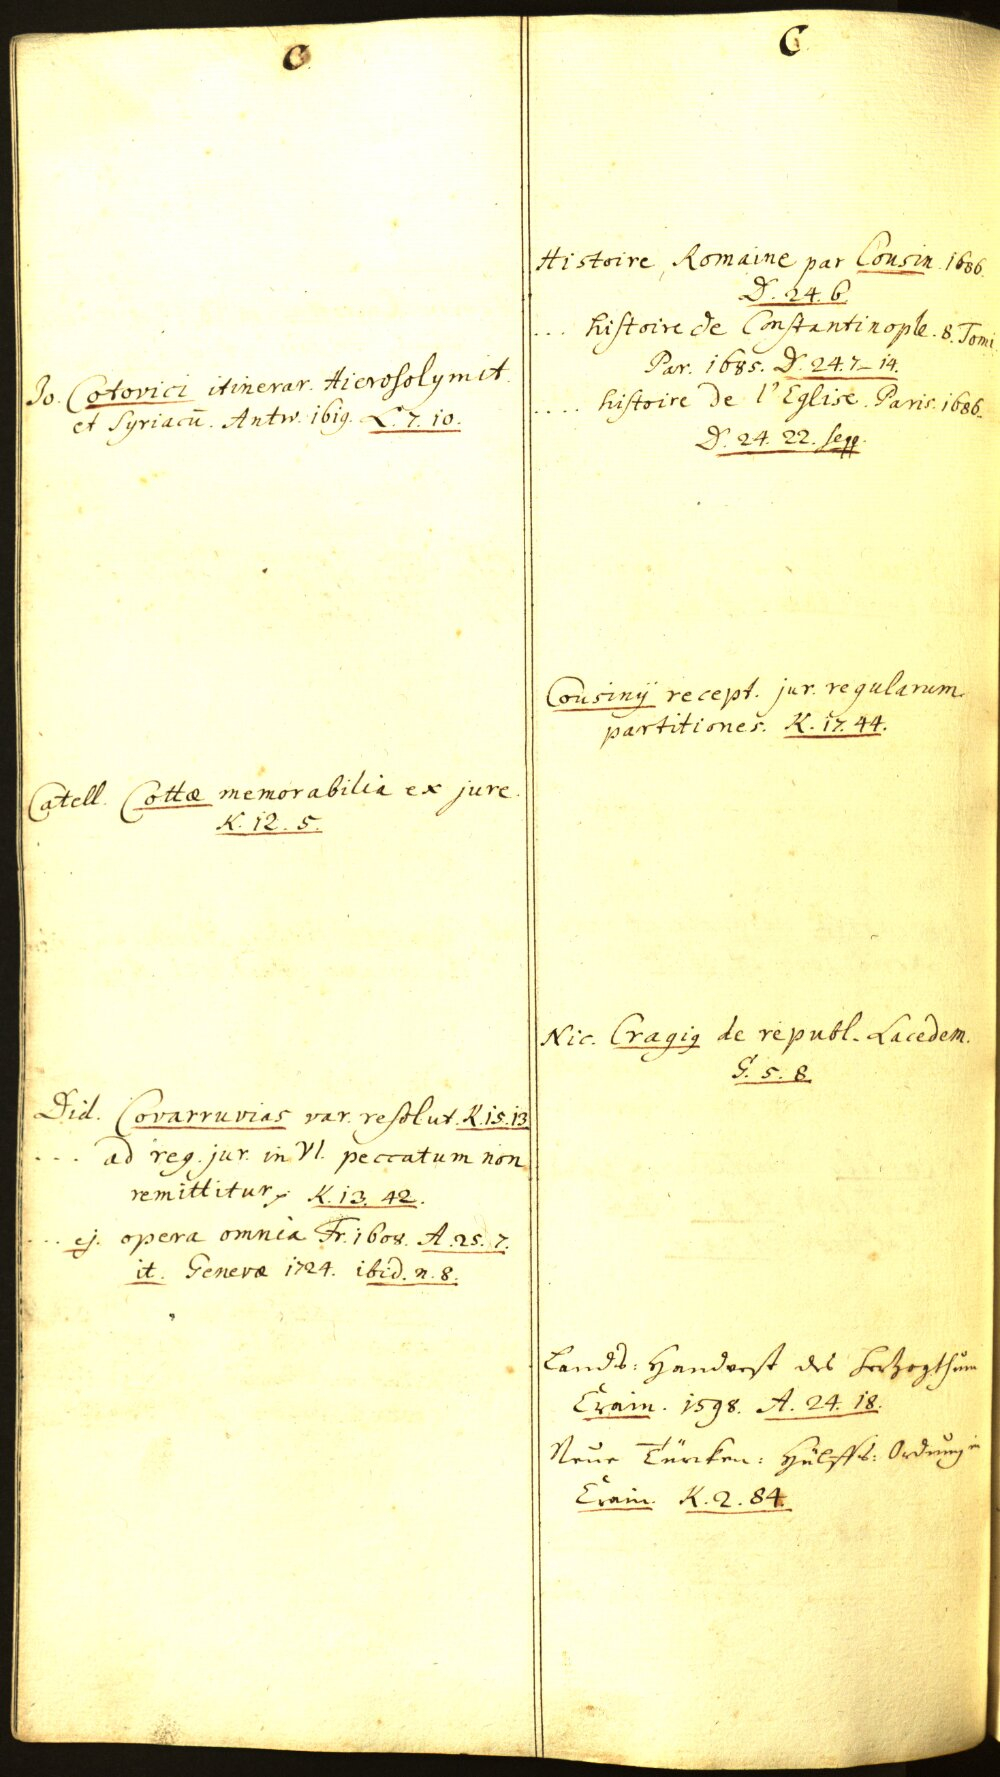 C.
Jo. Cotovici itinerar. Hierosolymit.
et Syriacū. Antw. 1619. L. 7. 10.
Catell. Cottæ memorabilia ex jure.
K. 12. 5.
Did. Covarruvias var. resolut. K. 15. 13
... ad reg. jur. in VI. peccatum non
remittitur K. 13. 42.
... ej. opera omnia Fr. 1608. A. 25. 7.
it. Genevæ 1724. ibid. n. 8.
C
Histoire Romaine par Cousin. 1686.
D. 24. 6
... histoire de Constantinople. 8. Tomi
Par. 1685. D. 24. 7–14.
.... histoire de l'Eglise. Paris. 1686.
D. 24. 22. seqq.
Cousinÿ recept. jur. regularum
partitiones. K. 17. 44.
Nic. Cragig de republ. Lacedem.
G. 5. 8
Lands: Handvest des Hertzogthum
Crain. 1598. A. 24. 18.
Neue Türcken: Hülffs: Ordnung in
Crain. K. 2. 84.